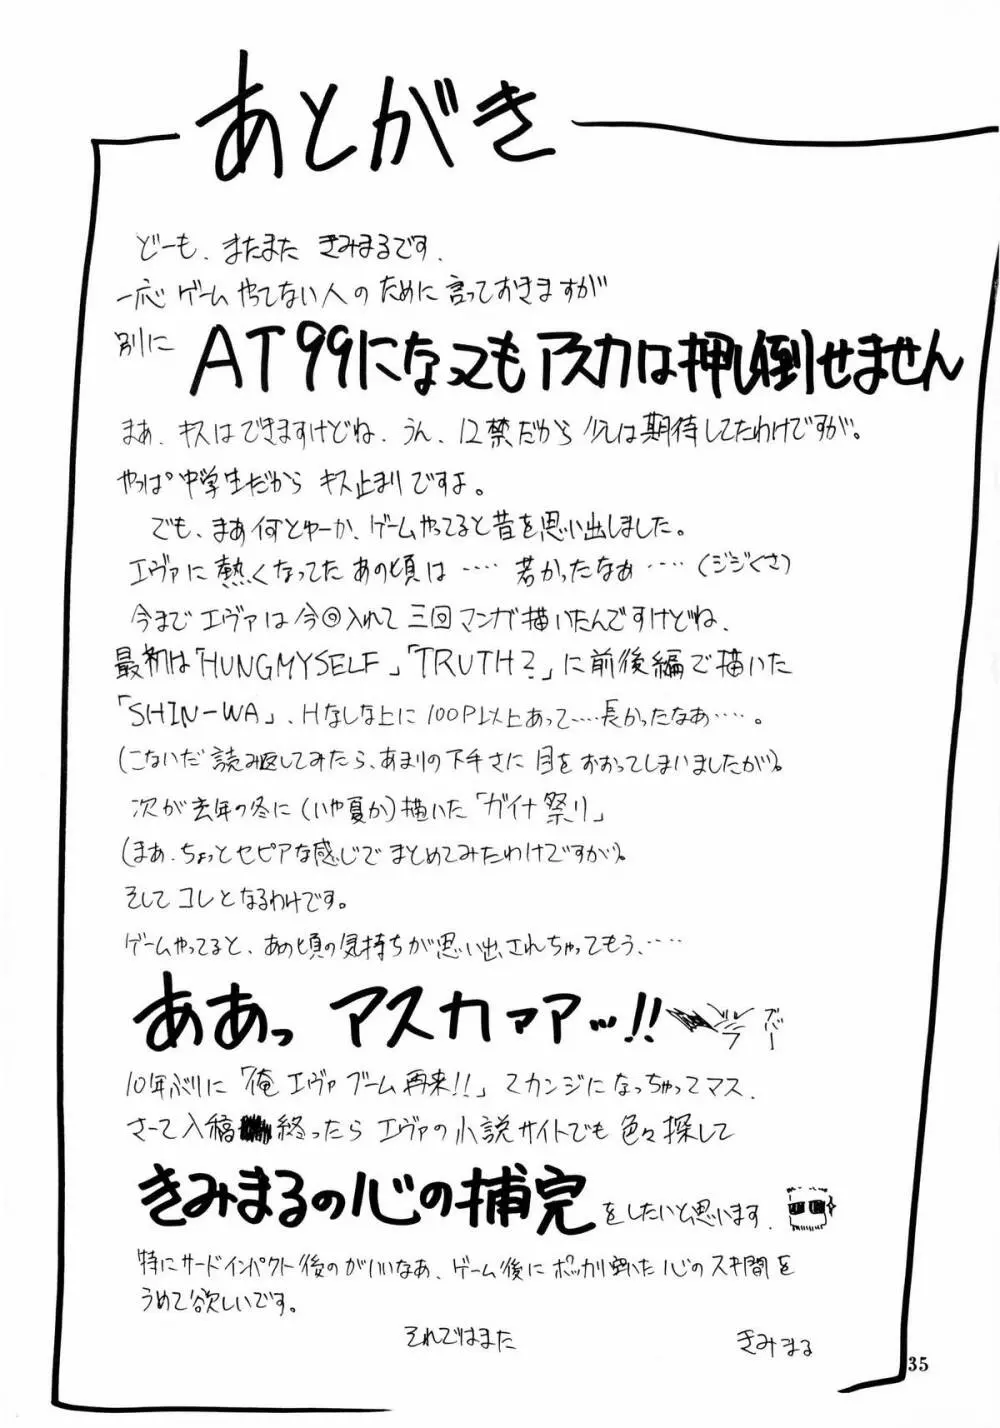 あとがき
どーも、またまた きみまるです.
一応 ゲームやってない人のために言っておきますが
別に AT99になってもアスカは押し倒せません
まあ、キスはできますけどね、うん、12禁だから 少しは期待してたわけですが。
やっぱ中学生だから キス止まりですよ。
でも、まあ何とゆーか、ゲームやってると昔を思い出しました。
エヴァに熱くなってた あの頃は‥‥ 若かったなぁ‥‥(ジジくさ)
今まで エヴァは今回入れて 三回マンガ描いたんですけどね、
最初は「HUNGMYSELF」「TRUTH?」に前後編で描いた
「SHIN-WA」、Hなしな上に 100P以上あって‥‥長かったなあ‥‥。
(こないだ 読み返してみたら、あまりの下手さに 目をおおってしまいましたが)。
次が去年の冬に(いや夏か)描いた「ガイナ祭り」
(まあ、ちょっとセピアな感じで まとめてみたわけですが)。
そして コレとなるわけです。
ゲームやってると、あの頃の気持ちが思い出されちゃってもう、‥‥
ああっ アスカァア・・ッ!!
ズバー
10年ぶりに「俺 エヴァ ブーム 再来!!」てカンジになっちゃってマス.
さーて入稿 終ったら エヴァの小説サイトでも 色々探して
きみまるの心の補完をしたいと思います.
特にサードインパクト後のがいいなあ、ゲーム後に ポッカリ空いた 心のスキ間を
うめて欲しいです。
それではまた
きみまる
35